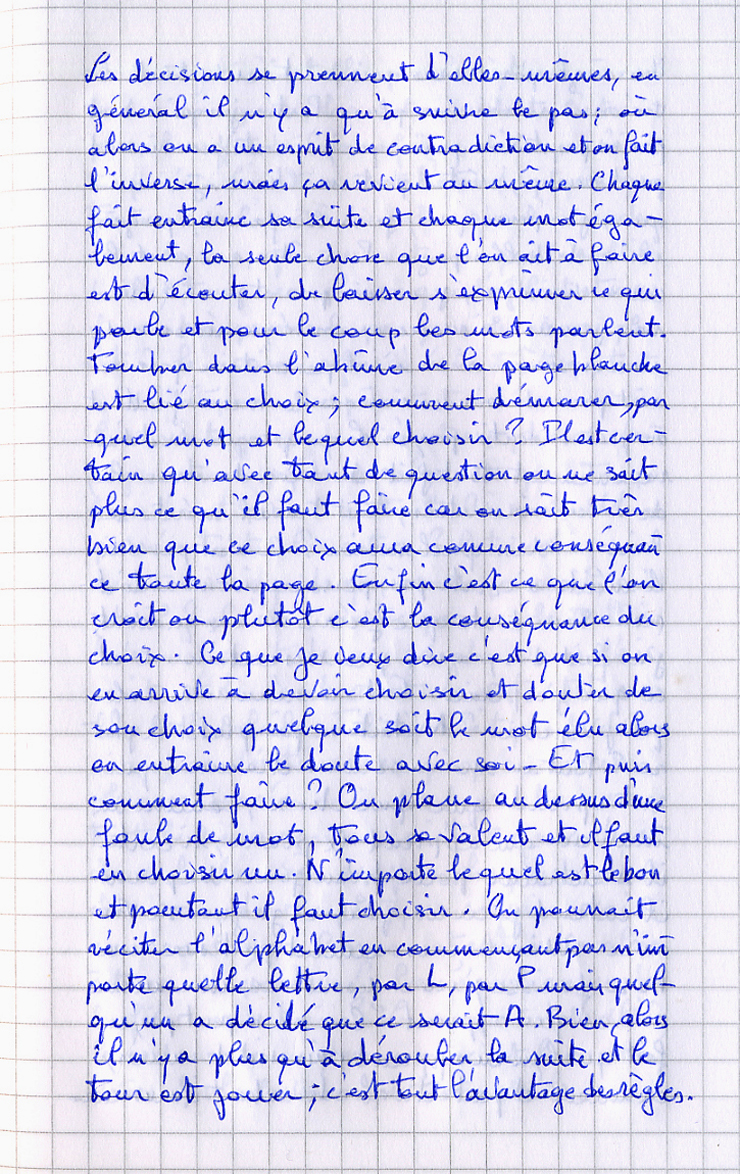 Les décisions se prennent d'elles-mêmes, en
général il n'y a qu'à suivre le pas ; où
alors on a un esprit de contradiction et on fait
l'inverse, mais ça revient au même. Chaque
fait entraine sa suite et chaque mot éga-
lement, la seule chose que l'on ait à faire
est d'écouter, de laisser s'exprimer ce qui
parle et pour le coup les mots parlent.
Tomber dans l'abime de la page blanche
est lié au choix ; comment démarer, par
quel mot et lequel choisir ? Il est cer-
tain qu'avec tant de question on ne sait
plus ce qu'il faut faire car on sait très
bien que ce choix aura comme conséquan
ce toute la page. Enfin c'est ce que l'on
croit ou plutôt c'est la conséquance du
choix. Ce que je veux dire c'est que si on
en arrive à devoir choisir et douter de
son choix quelque soit le mot élu alors
on entraine le doute avec soi - Et puis
comment faire ? On plane au dessus d'une
foule de mot, tous se valent et il faut
en choisir un. N'importe lequel est le bon
et pourtant il faut choisir. On pourrait
réciter l'alphabet en commençant par n'im
porte quelle lettre, par L, par P mais quel-
qu'un a décidé que ce serait A. Bien, alors
il n'y a plus qu'à dérouler la suite et le
tour est jouer ; c'est tout l'avantage des règles.